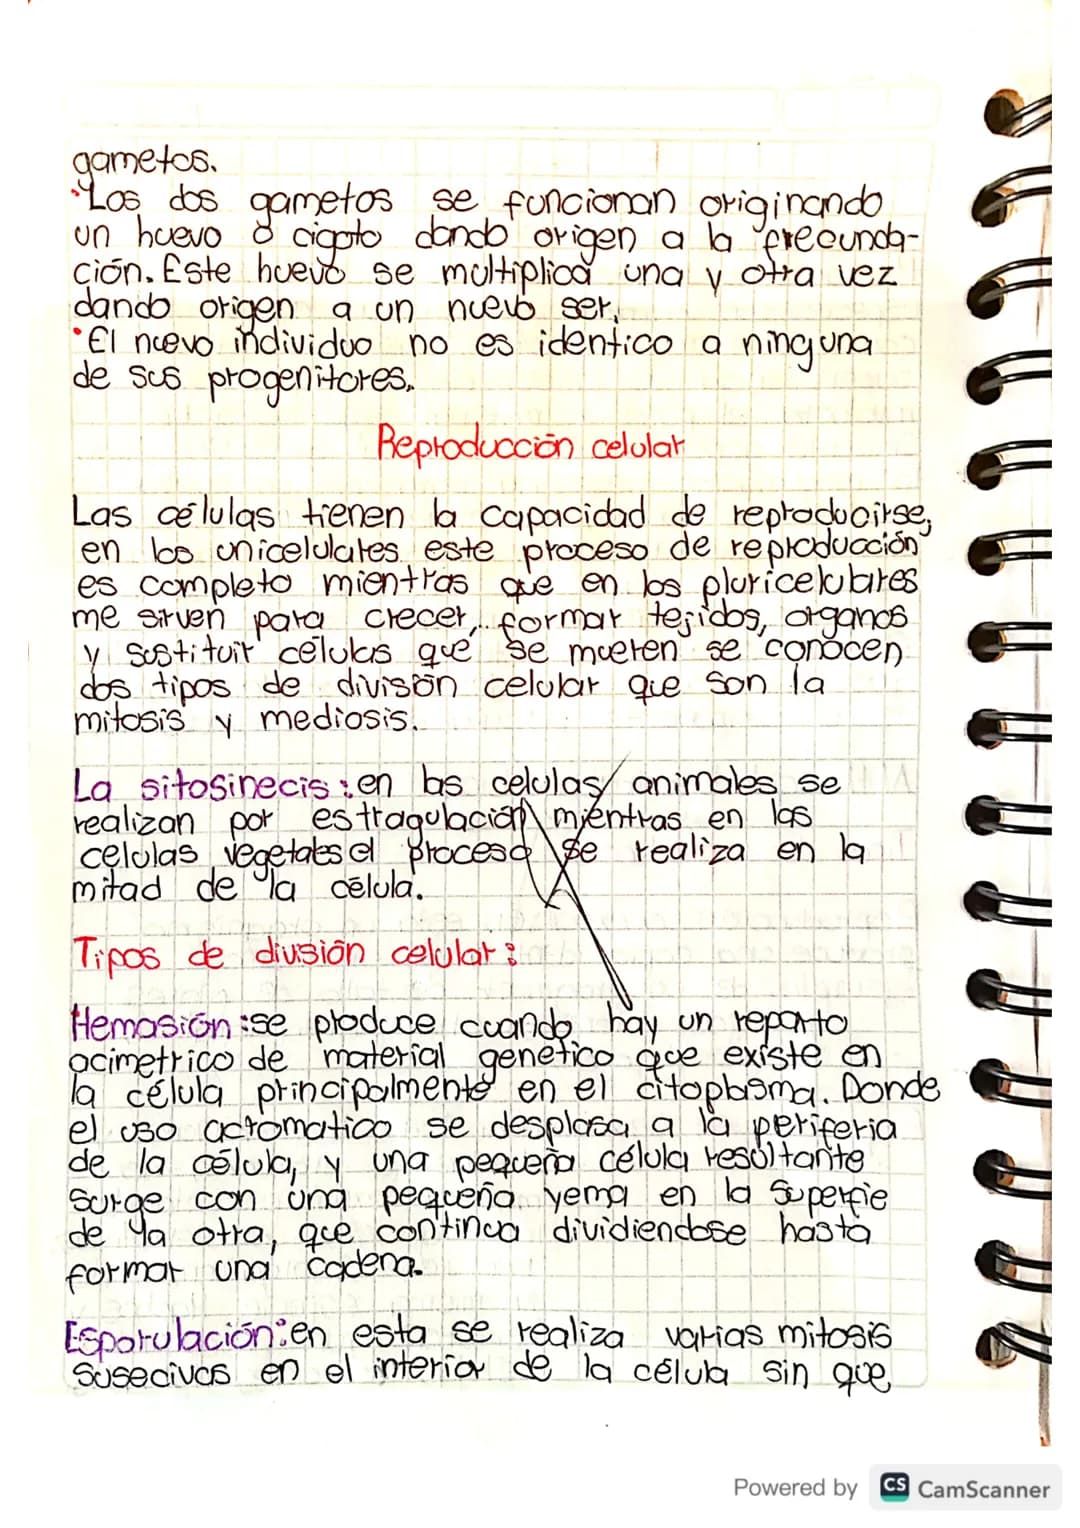 gametos.
•Los dos gametos se funcionan originando
un huevo o cigoto dando origen a la frecunda-
ción. Este huevo se multiplica una y otra vez
dando origen a un nuevo ser.
•El nuevo individuo no es identico a ninguna
de sus progenitores.
Reproducción celular
Las células tienen la capacidad de reproducirse,
en los unicelulares este proceso de reproducción
es completo mientras que en los pluricelulares
me sirven para crecer, formar tejidos, organos
y sustituir células que se mueren se conocen
dos tipos de división celular que son la
mitosis y mediosis.
La sitosinecis: en las celulas animales se
realizan por estragulación mientras en las
celulas vegetales el proceso se realiza en la
mitad de la célula.
Tipos de divusión celular:
Hemasión: se produce cuando hay un reparto
acimetrico de material genetico que existe en
la célula principalmente en el citoplasma. Donde
el uso actomatico se desplasa a la periferia
de la célula, y una pequeña célula resultante
surge con una pequeña yema en la superfie
de la otra, que continua dividiendose hasta
formar una cadena.
Esporulación: en esta se realiza varias mitosis
susecivas en el interior de la célula sin que
Powered by CS CamScanner